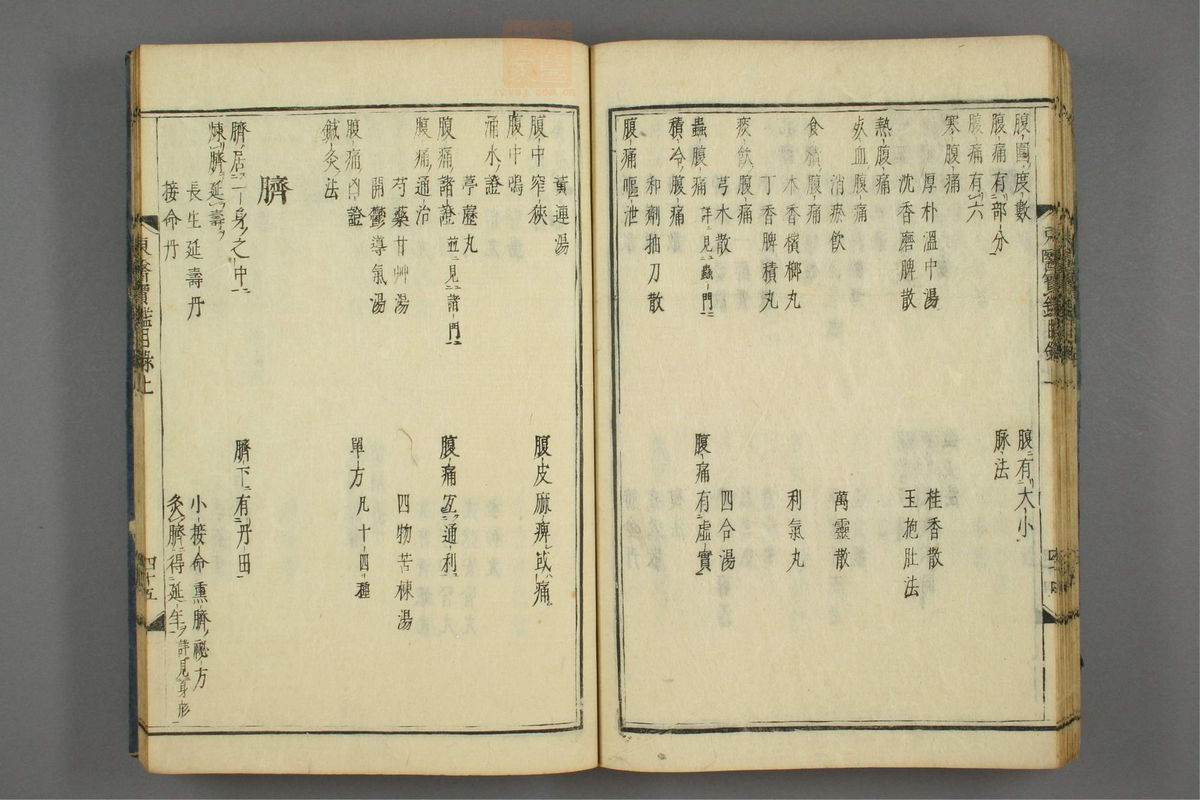 腹圍度數
腹有大小
腹痛有部分
脉法
腹痛有六
寒腹痛
厚朴溫中湯
桂香散
沈香磨脾散
玉抱肚法
熱腹痛
瘀血腹痛
消瘀飮
萬靈散
食積腹痛
木香檳榔丸
利氣丸
丁香脾積丸
痰飮腹痛
芎朮散
四合湯
蟲腹痛詳見蟲門
腹痛有虛實
積冷腹痛
和劑抽刀散
腹痛嘔泄
東醫寶鑑目錄上
四十四
黃連湯
腹中窄狹
腹皮麻痺或痛
腹中鳴
涌水證
葶藶丸
腹痛諸證並見諸門
腹痛宜通利
腹痛通治
芍藥甘艸湯
四物苦楝湯
開鬱導氣湯
腹痛凶證
單方凡十四種
鍼灸法
臍
臍居一身之中
臍下有丹田
煉臍延壽
長生延壽丹
小接命熏臍祕方
接命丹
灸臍得延年詳見身形
東醫寶鑑目錄上
四十五